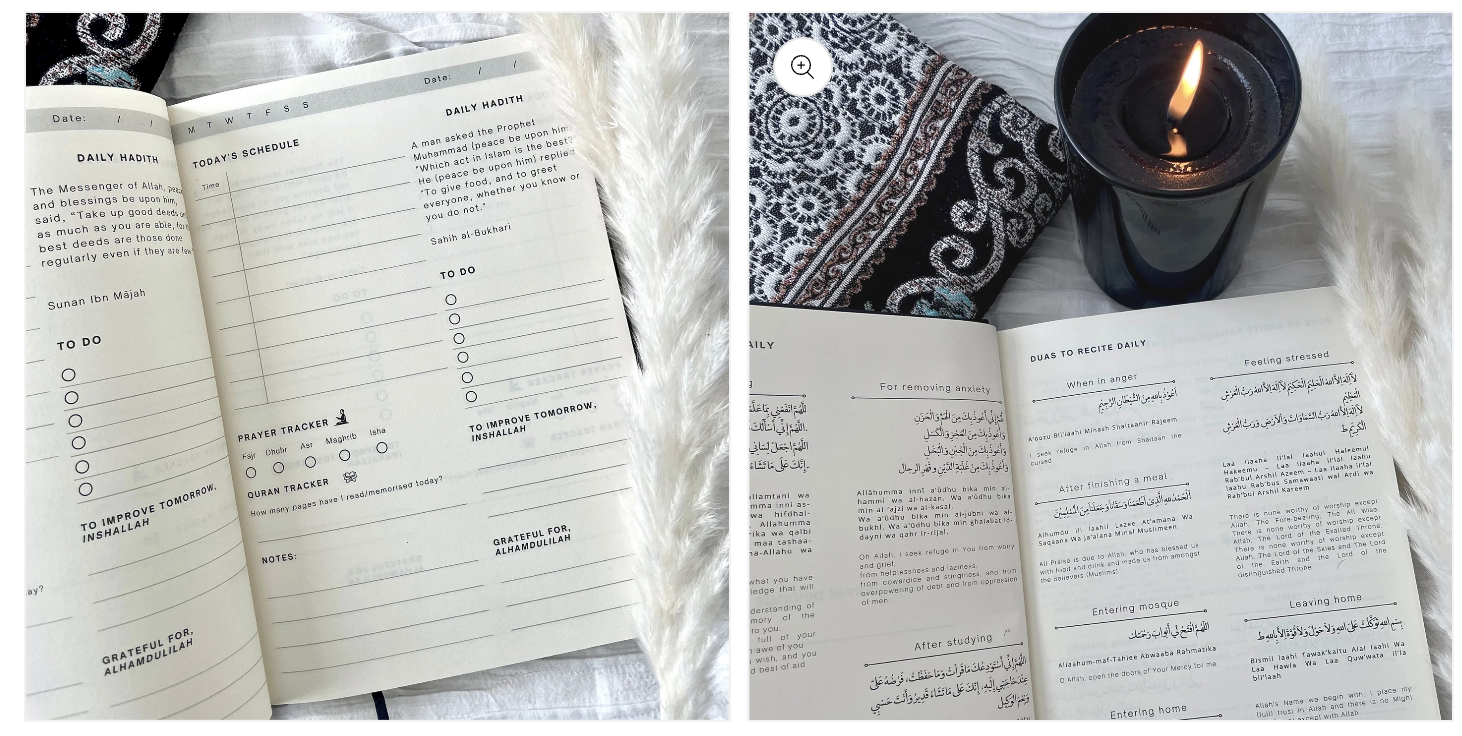 Date: / /
DAILY HADITH
The Messenger of Allah, peace
and blessings be upon him,
said, "Take up good deeds
as much as you are able, for
best deeds are those done
regularly even if they are few."
Sunan Ibn Mājah
TO DO
TO IMPROVE TOMORROW,
INSHALLAH
ay?
GRATEFUL FOR,
ALHAMDULILAH
M T W T F S S
Date: / /
TODAY'S SCHEDULE
Time
PRAYER TRACKER
Fajr Dhubr Asr Maghrib Isha
QURAN TRACKER
How many pages have I read/memorised today?
NOTES:
DAILY HADITH
A man asked the Prophet
Muhammad (peace be upon him)
"Which act in Islam is the best?"
He (peace be upon him) replied
"To give food, and to greet
everyone, whether you know or
you do not."
Sahih al-Bukhari
TO DO
TO IMPROVE TOMORROW,
INSHALLAH
GRATEFUL FOR,
ALHAMDULILAH
AILY
g
allamtani wa
mma inni as-
wa hifdhal-
Allahumma
rika wa qalbi
maa tashaa-
na-Allahu wa
what you have
ledge that will
derstanding of
mory of the
to you.
full of your
awe of you
wish, and you
d best of aid
For removing anxiety
وَأَعُوذُ بِكَ مِنَ العَجْزِ وَالْكَسَلِ
وَأَعُوذُ بِكَ مِنَ الجُبْنِ وَالبُخْلِ
وَأَعُوذُ بِكَ مِنْ غَلَبَةِ الدَّيْنِ وَقَهْرِ الرجال
Allāhumma innī a'ūdhu bika min al-
hammi wa al-ḥazan, Wa a'ūdhu bika
min al 'ajzi wa al-kasal
Wa a'ūdhu bika min al-jubni wa al-
bukhl, Wa a'ūdhu bika min ghalabat id-
dayni wa qahr ir-rijal.
Oh Allah, I seek refuge in You from worry
and grief,
from helplessness and laziness,
from cowardice and stinginess, and from
overpowering of debt and from oppression
of men
After studying
DUAS TO RECITE DAILY
When in anger
أَعُوذُ بِاللهِ مِنَ الشَّيْطَانِ الرَّجِيْمِ
A'oozu Bi'llaahi Minash Shaitaanir Rajeem
I seek refuge in Allah from Shaitaan the
cursed
After finishing a meal
اَلْحَمْدُ لِلّٰهِ الَّذِيْ أَطْعَمَنَا وَسَقَانَا وَجَعَلَنَا مِنَ الْمُسْلِمِيْنَ
Alhumdu li'l laahil Lazee At'amana Wa
Saqaana Wa ja'alana Minal Muslimeen
All Praise is due to Allah, who has blessed us
with food and drink and made us from amongst
the believers (Muslims)
Entering mosque
اللَّهُمَّ افْتَحْ لِي أَبْوَابَ رَحْمَتِكَ
Allaahum-maf-Tahlee Abwaaba Rahmatika
O Allah, open the doors of Your Mercy for me
Entering home
Feeling stressed
Laa ilaaha il'lal laahul Haleemul
Hakeemu - Laa ilaaha il'lal laahu
Rab'bul Arshil Azeem - Laa ilaaha il'lal
laahu Rab'bus Samawaati wal Ardi wa
Rab'bul Arshil Kareem
There is none worthy of worship except
Allah, The Fore-bearing, The All Wise.
There is none worthy of worship except
Allah, The Lord of the Exalted Throne.
There is none worthy of worship except
Allah, The Lord of the Skies and The Lord
of the Earth and the Lord of the
distinguished Throne
Leaving home
بِسْمِ اللهِ تَوَكَّلْتُ عَلَى اللهِ وَلَا حَوْلَ وَلَا قُوَّةَ إِلَّا بِاللهِ ط
Bismil laahi Tawak'kaltu Alal laahi Wa
Laa Hawla Wa Laa Quw'wata il'la
bil'laah
Allah's Name we begin with, I place my
(full) trust in Allah and there is no Might